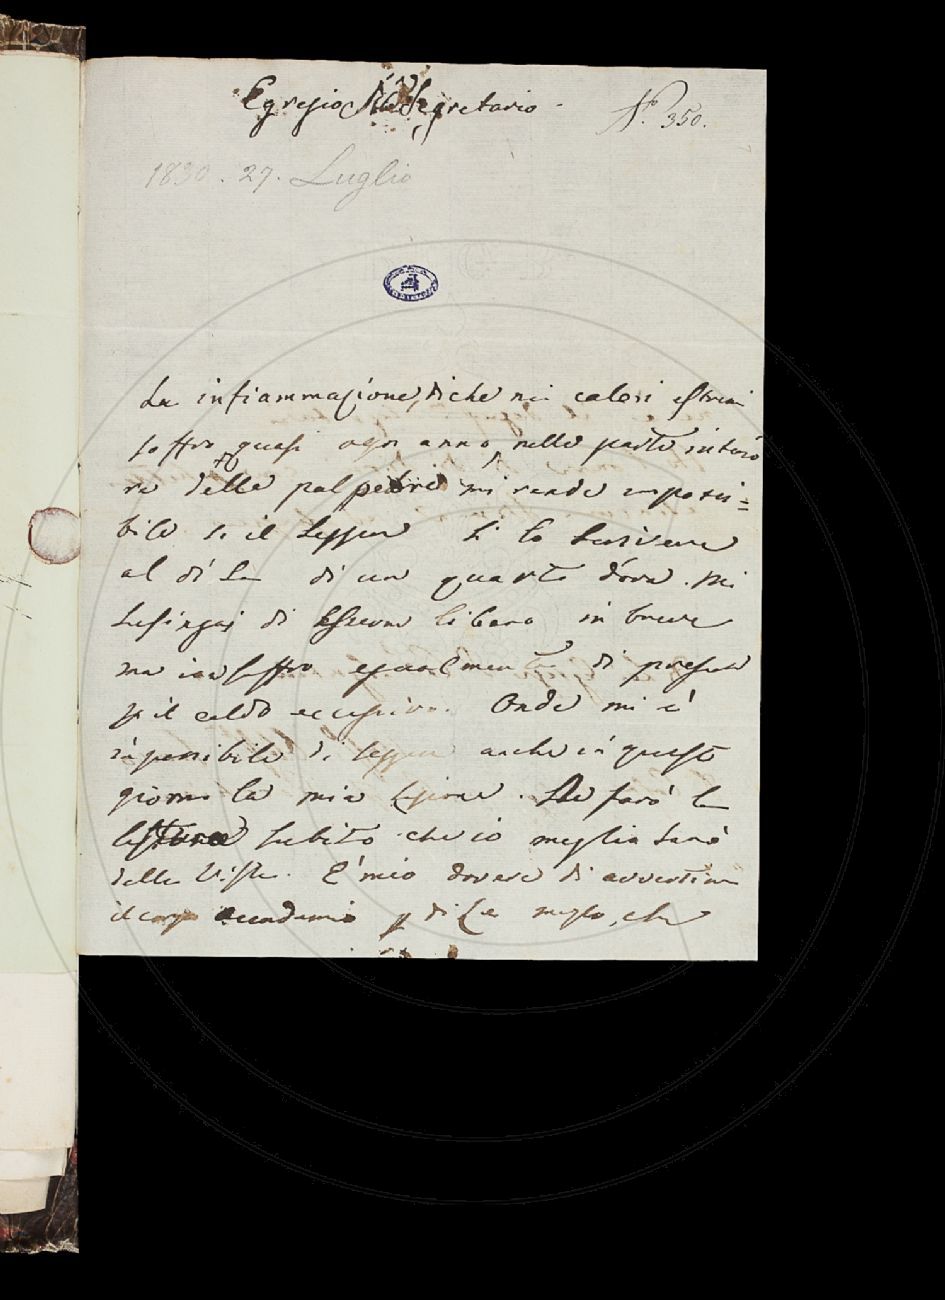 Egregio Sig. Segretario -
N.º 350.
1830. 27. Luglio
La infiammazione, di che nei calori estivi
soffro quasi ogni anno, nelle parte interio
re delle palpebre mi rende impossi=
bile si il leggere si lo scrivere
al di là di un quarto d'ora. Mi
lusingai di essere libero in breve
ma io soffro egualmente di presente
il caldo eccessivo. Onde mi è
impossibile di leggere anche in questo
giorno la mia lezione. Ne farò la
lettura subito che io meglio sarò
della vista. È mio dovere di avvertire
il corpo accademico di Lei mezzo, che